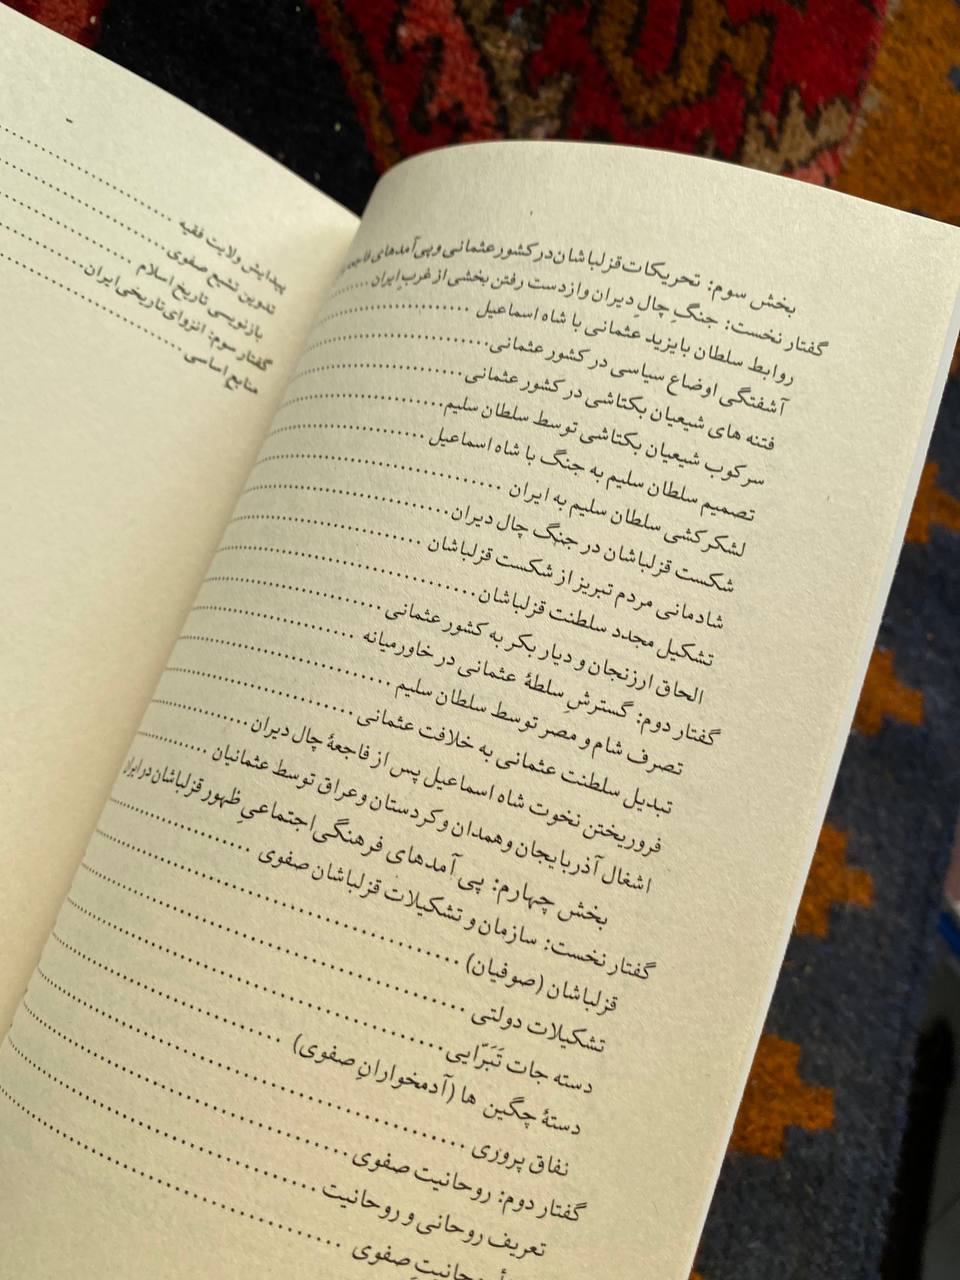 بخش سوم: تحریکات قزلباشان در کشور عثمانی و پی‌آمدهای فاجعه
گفتار نخست: جنگِ چالِ دیران و از دست رفتن بخشی از غربِ ایران
روابط سلطان بایزید عثمانی با شاه اسماعیل
آشفتگی اوضاع سیاسی در کشور عثمانی
فتنه های شیعیان بکتاشی در کشور عثمانی
سرکوب شیعیان بکتاشی توسط سلطان سلیم
تصمیم سلطان سلیم به جنگ با شاه اسماعیل
لشکرکشی سلطان سلیم به ایران
شکست قزلباشان در جنگ چال دیران
شادمانی مردم تبریز از شکست قزلباشان
تشکیل مجدد سلطنت قزلباشان
الحاق ارزنجان و دیار بکر به کشور عثمانی
گفتار دوم: گسترشِ سلطهٔ عثمانی در خاورمیانه
تصرف شام و مصر توسط سلطان سلیم
تبدیل سلطنت عثمانی به خلافت عثمانی
فروریختن نخوت شاه اسماعیل پس از فاجعهٔ چال دیران
اشغال آذربایجان و همدان و کردستان و عراق توسط عثمانیان
بخش چهارم: پی آمدهای فرهنگی اجتماعیِ ظهور قزلباشان در ایران
گفتار نخست: سازمان و تشکیلات قزلباشان صفوی
قزلباشان (صوفیان)
تشکیلات دولتی
دسته جات تَبَرّایی
دستهٔ چگین ها (آدمخوارانِ صفوی)
نفاق پروری
گفتار دوم: روحانیت صفوی
تعریف روحانی و روحانیت
روحانیتِ صفوی
پیدایش ولایت فقیه
تدوین تشیع صفوی
بازنویسی تاریخ اسلام
گفتار سوم: انزوای تاریخی ایران
منابع اساسی